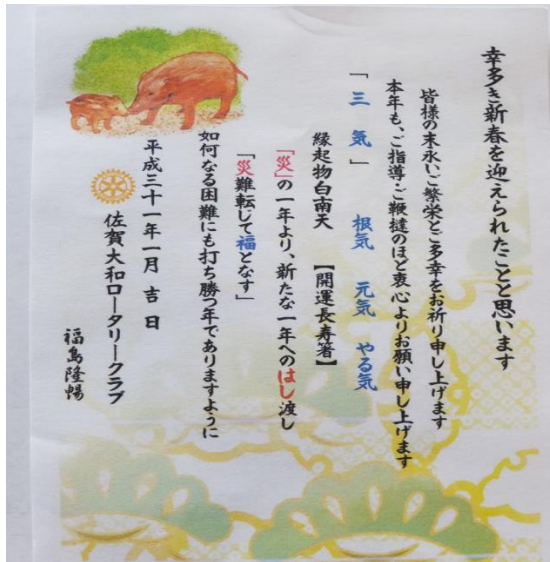 幸多き新春を迎えられたことと思います
皆様の末永いご繁栄とご多幸をお祈り申し上げます
本年も、ご指導・ご鞭撻のほど衷心よりお願い申し上げます
「三 気」 根気 元気 やる気
縁起物白南天 【開運長寿箸】
「災」の一年より、新たな一年へのはし渡し
「災難転じて福となす」
如何なる困難にも打ち勝つ年でありますように
平成三十一年一月 吉 日
佐賀大和ロータリークラブ
福島隆暢